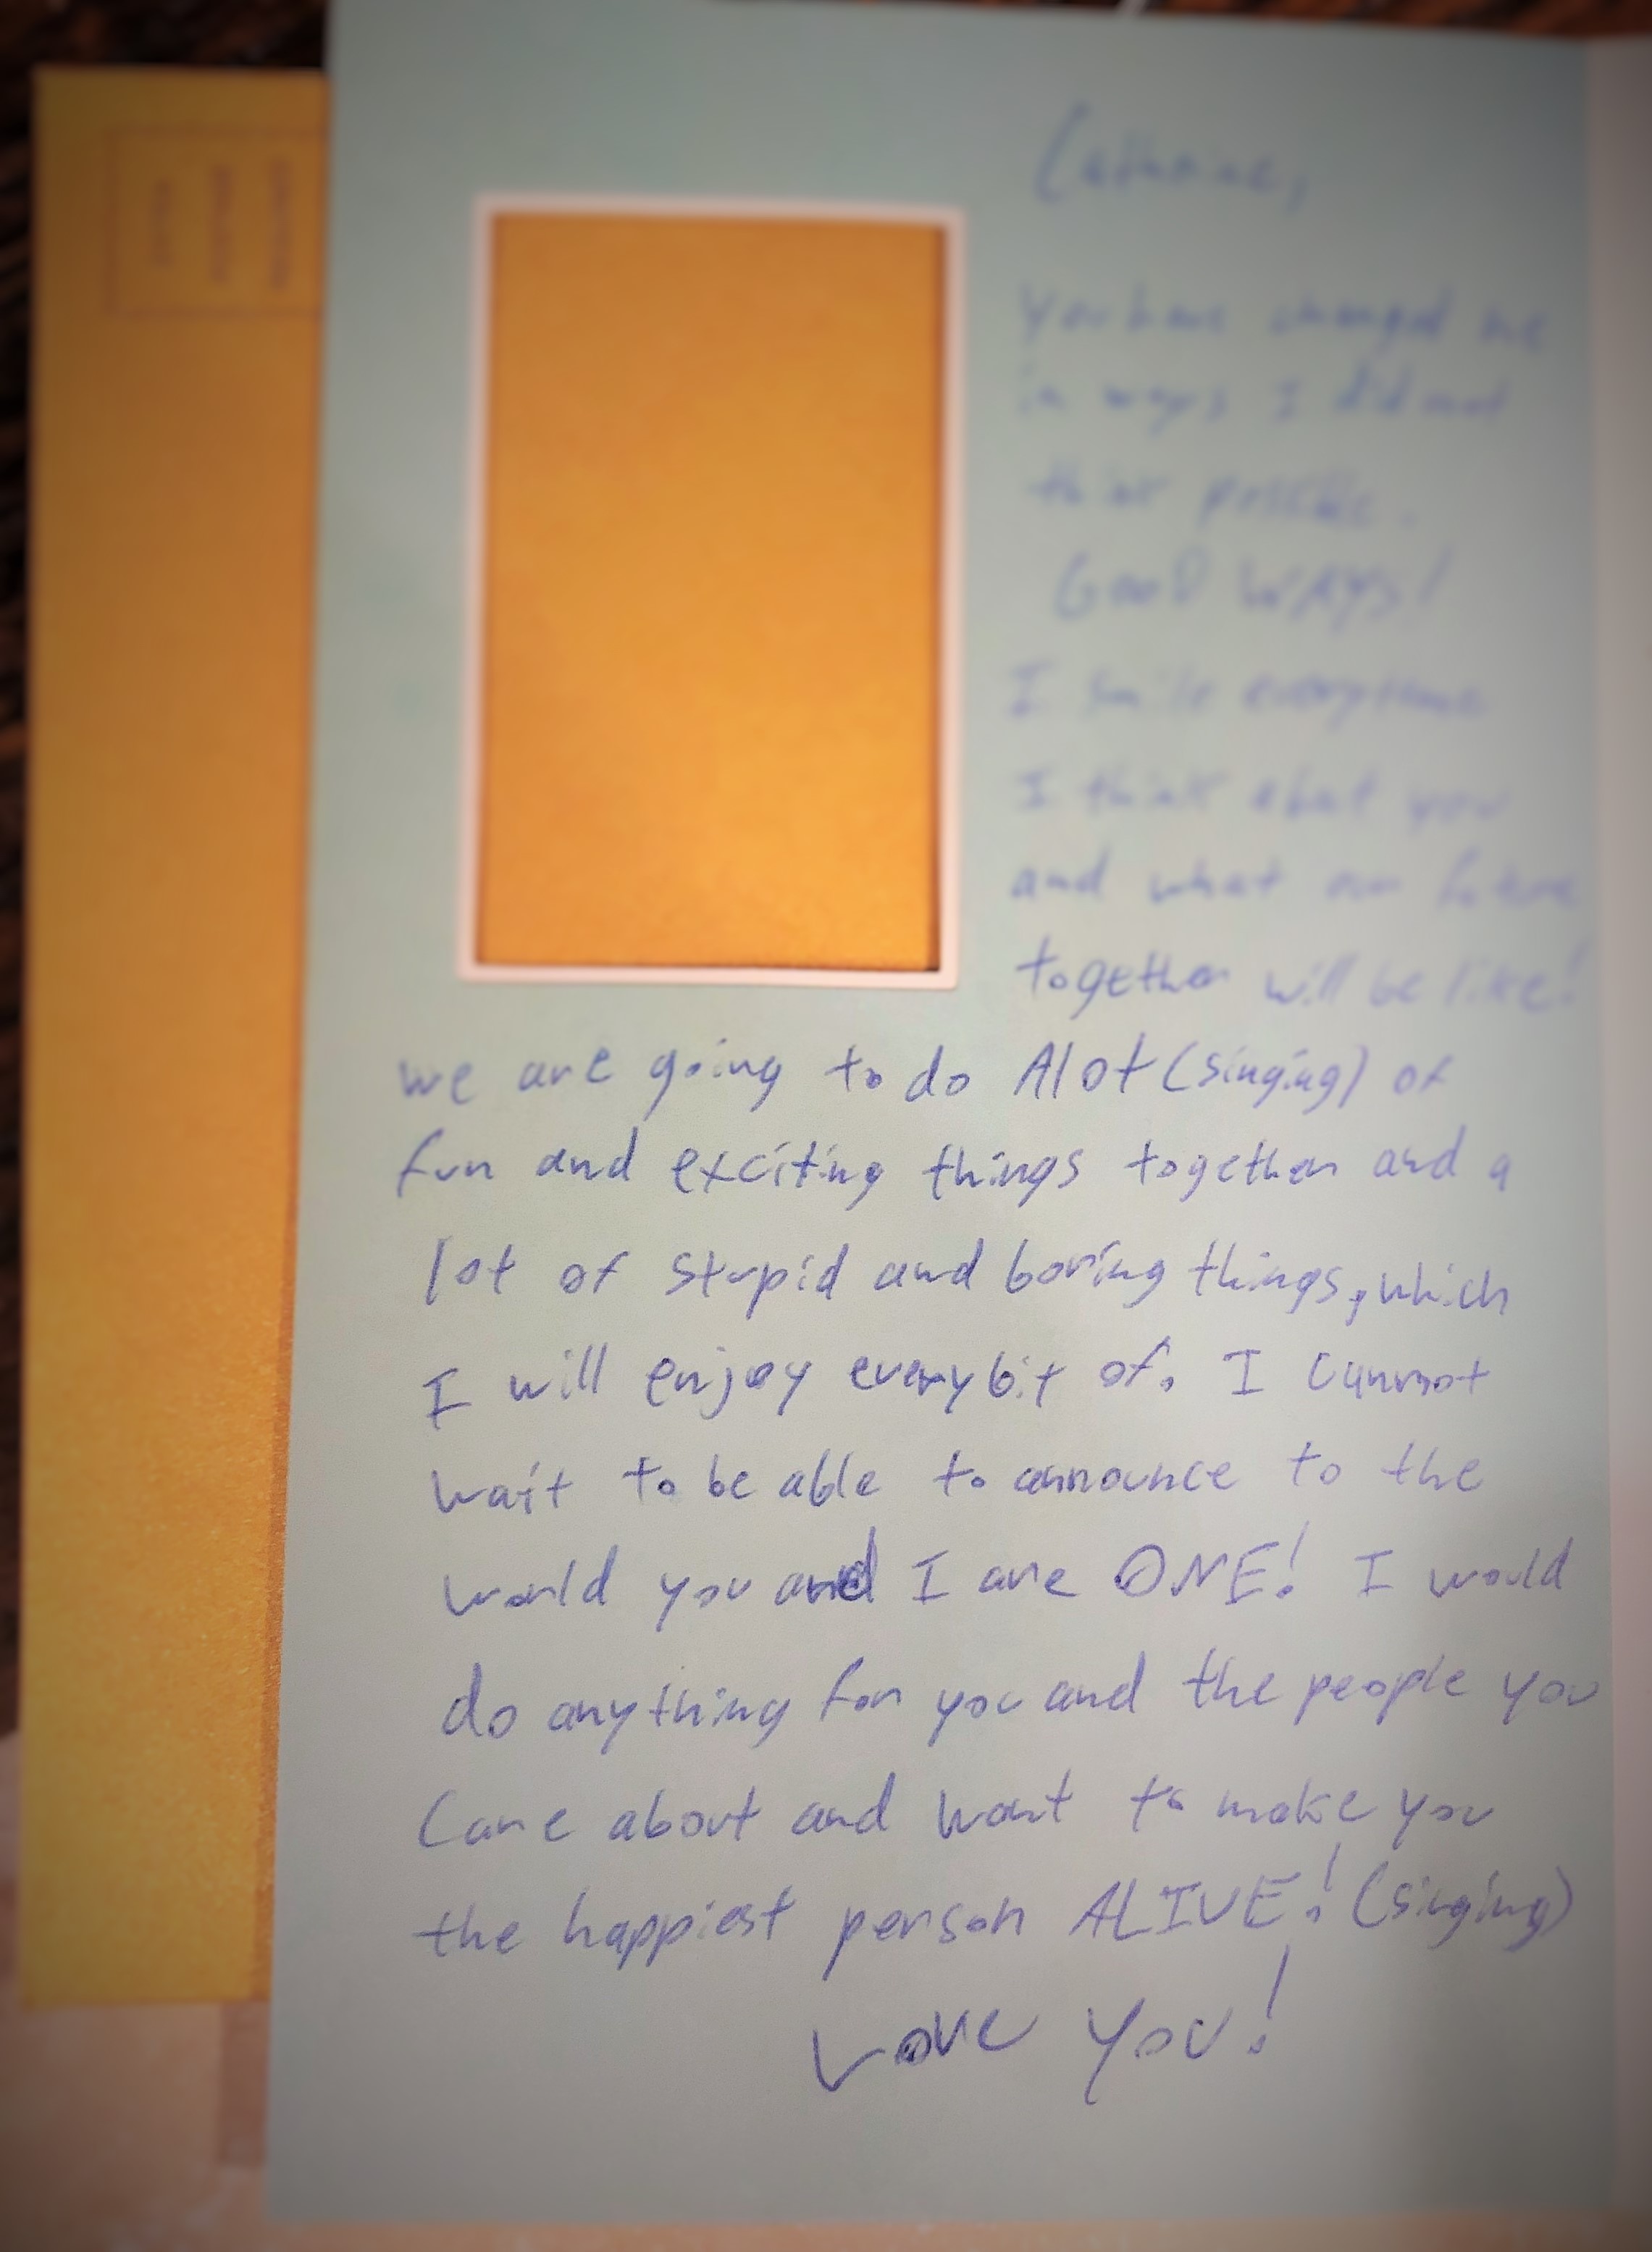 Catherine,
You have changed me
in ways I did not
think possible.
GOOD WAYS!
I smile everytime
I think about you
and what our future
together will be like!
we are going to do Alot (singing) of
fun and exciting things together and a
lot of stupid and boring things, which
I will enjoy everybit of. I cannot
wait to be able to announce to the
world you and I are ONE! I would
do anything for you and the people you
Care about and want to make you
the happiest person ALIVE! (singing)
Love You!